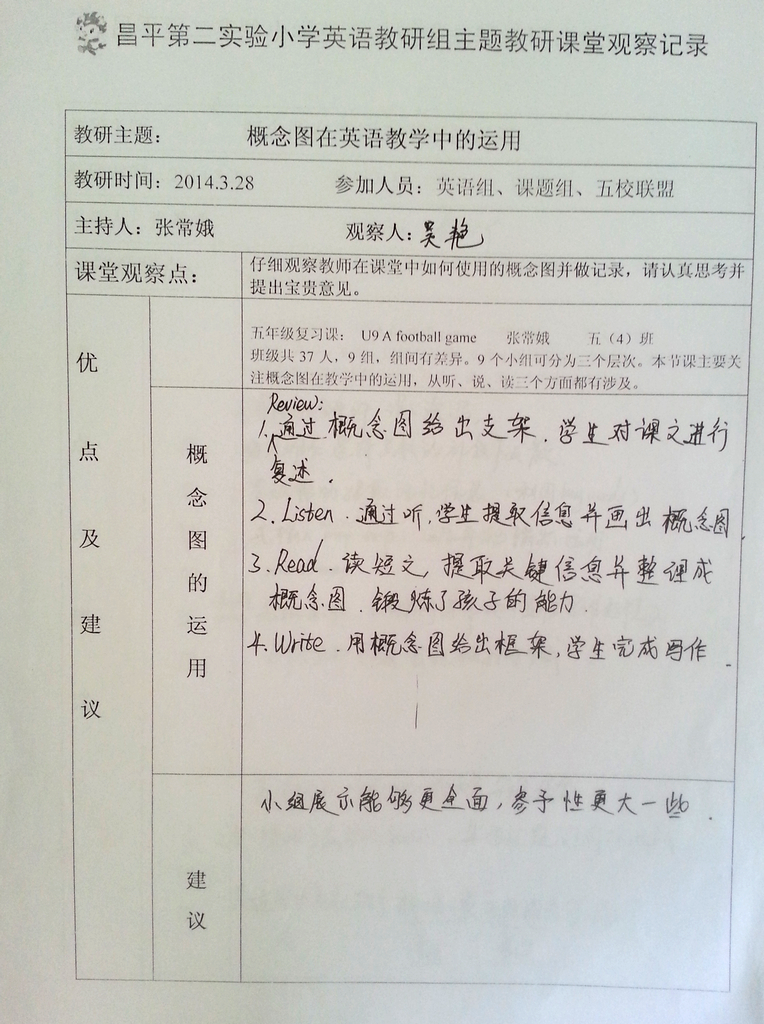 昌平第二实验小学英语教研组主题教研课堂观察记录
教研主题： 概念图在英语教学中的运用
教研时间：2014.3.28 参加人员：英语组、课题组、五校联盟
主持人：张常娥 观察人：吴艳
课堂观察点：
仔细观察教师在课堂中如何使用的概念图并做记录，请认真思考并
提出宝贵意见。
优点及建议
五年级复习课： U9 A football game 张常娥 五（4）班
班级共 37 人，9 组，组间有差异。9 个小组可分为三个层次。本节课主要关
注概念图在教学中的运用，从听、说、读三个方面都有涉及。
概念图的运用
Review:
1.通过概念图给出支架．学生对课文进行
复述．
2. Listen．通过听，学生提取信息并画出概念图．
3. Read．读短文，提取关键信息并整理成
概念图．锻炼了孩子的能力．
4. Write．用概念图给出框架，学生完成写作．
建议
小组展示能够更全面，参予性更大一些．